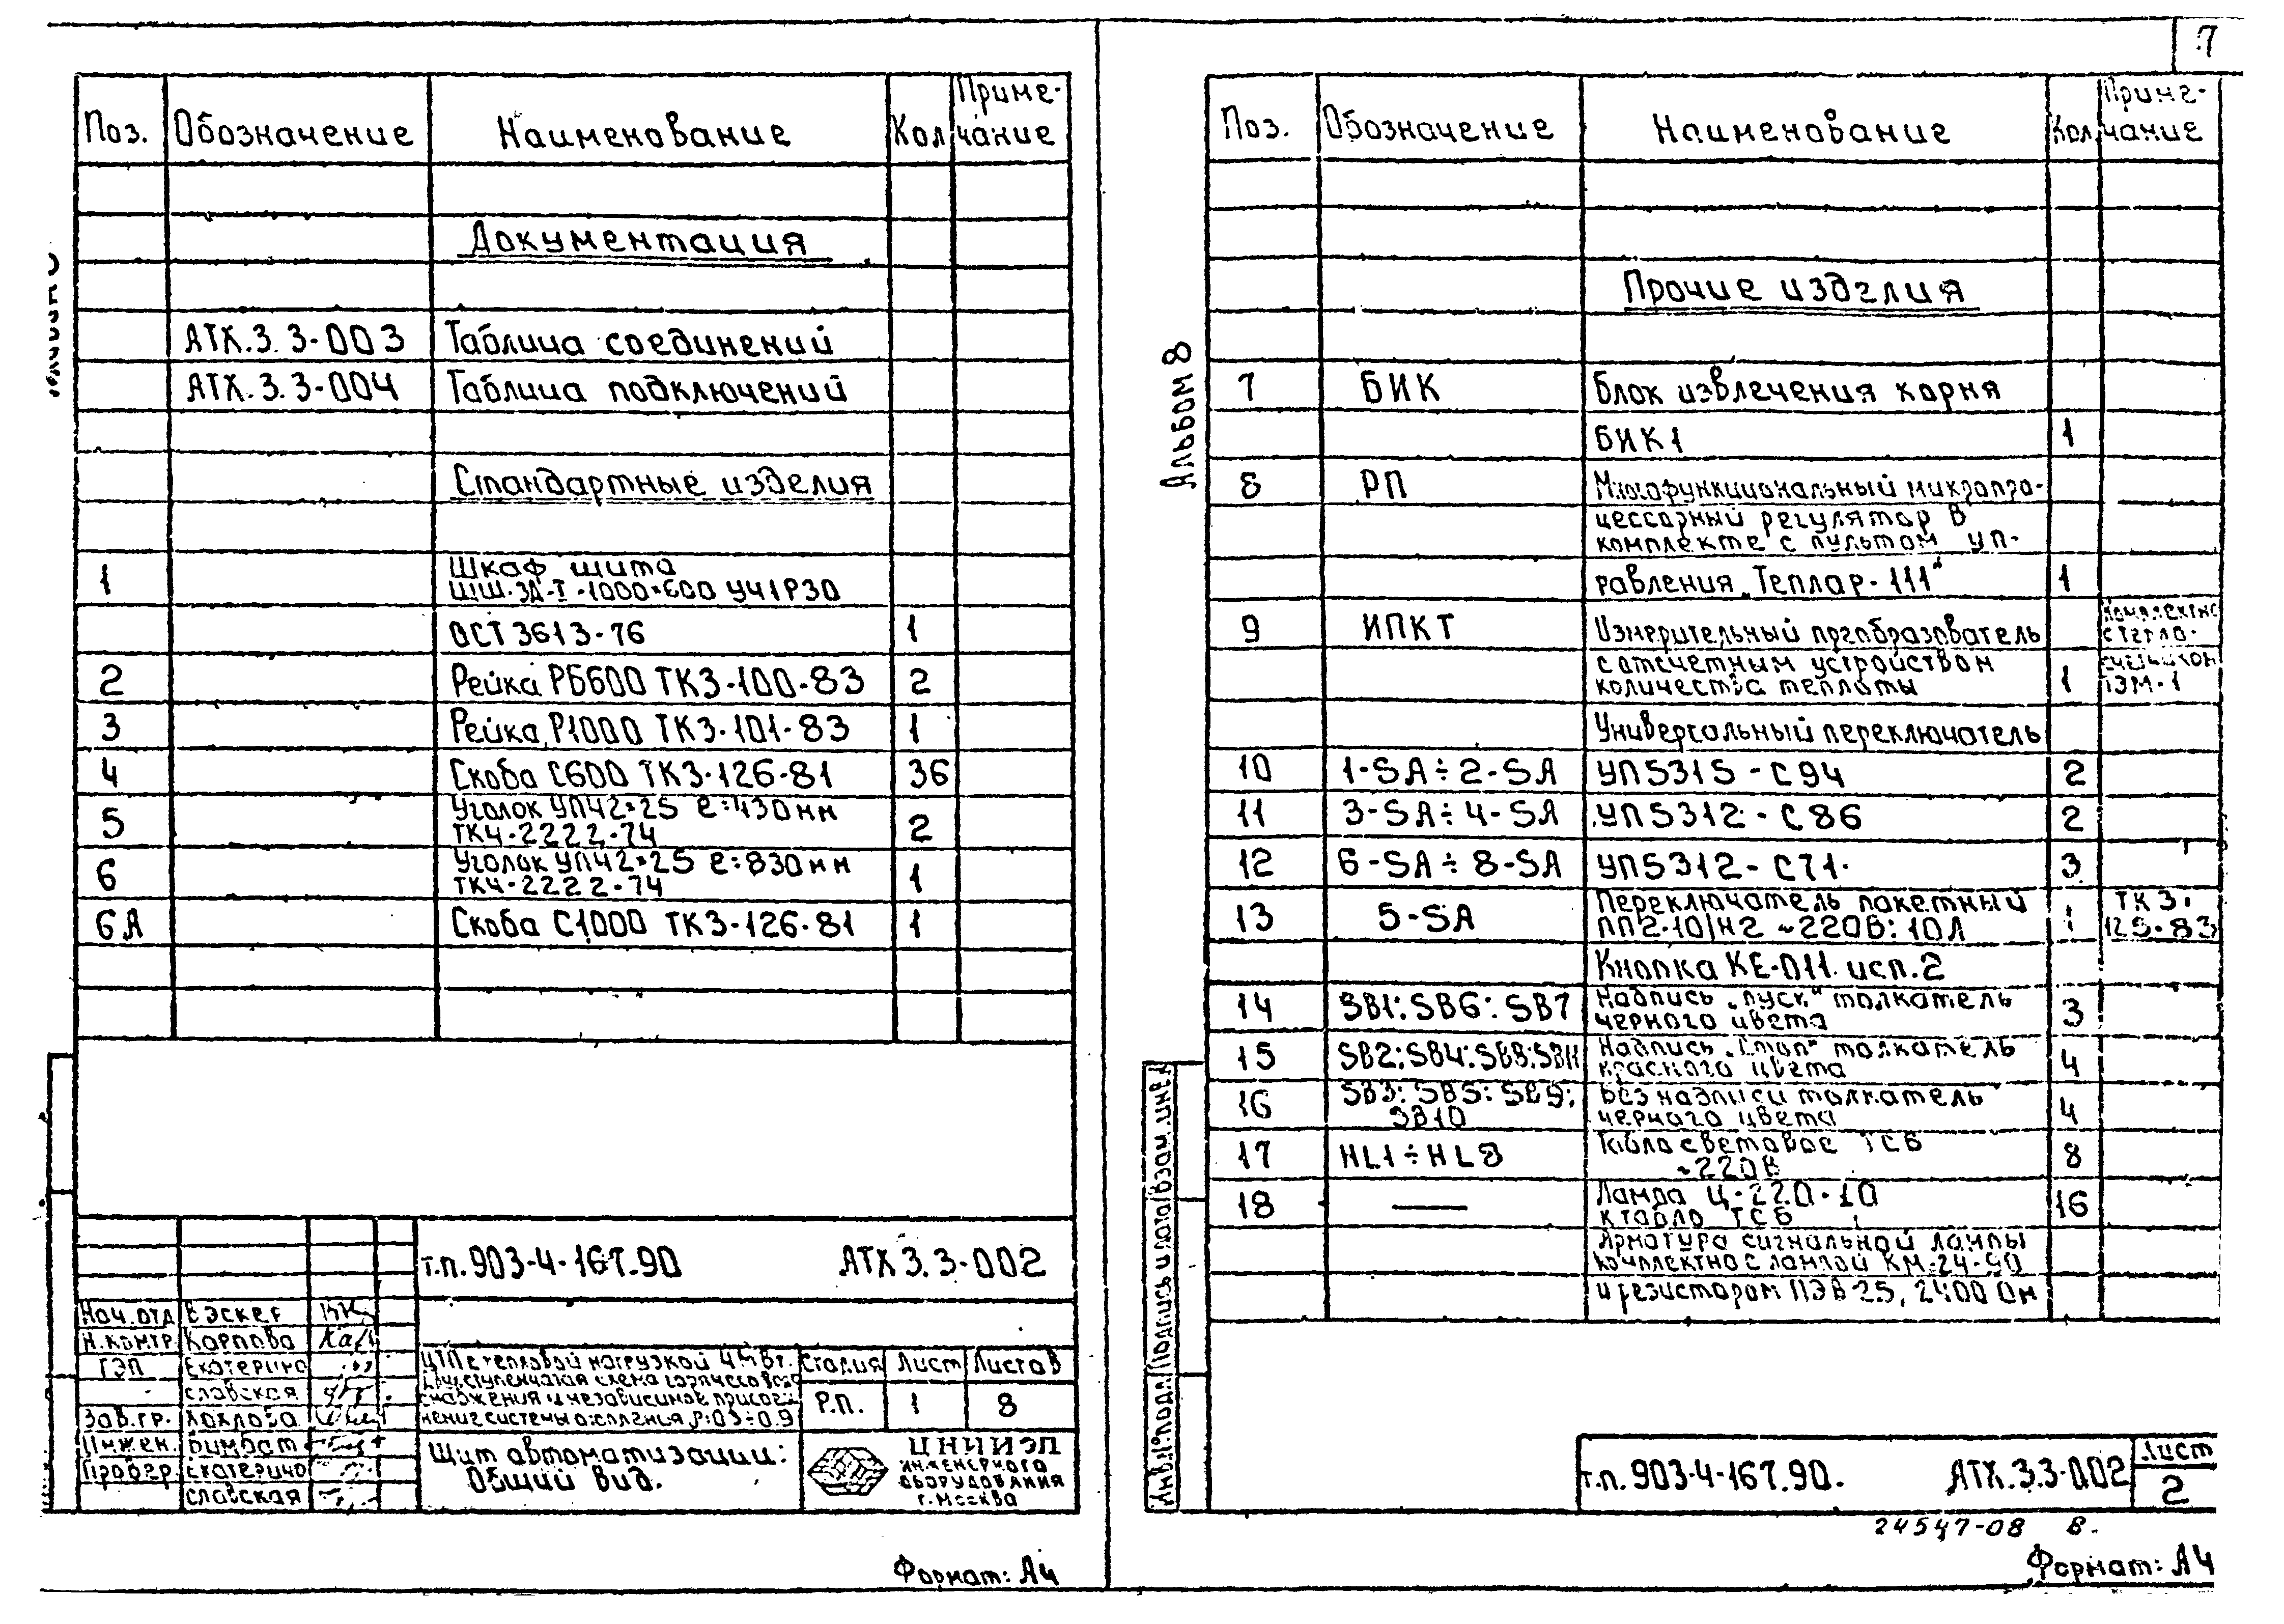 7
Поз. Обозначение Наименование Кол Приме-
чание
Документация
АТХ.3.3-003 Таблица соединений
АТХ.3.3-004 Таблица подключений
Стандартные изделия
1 Шкаф щита
ЩШ-ЗД-I-1000×600 УЧ1Р30
ОСТ 3613-76 1
2 Рейка РБ600 ТК3-100-83 2
3 Рейка Р1000 ТК3-101-83 1
4 Скоба С600 ТК3-126-81 36
5 Уголок УП42×25 ℓ=430мм
ТК4-2222-74 2
6 Уголок УП42×25 ℓ=830мм
ТК4-2222-74 1
6А Скоба С1000 ТК3-126-81 1
т.п. 903-4-167.90 АТХ 3.3-002
Нач.отд
Н.контр. Карпова
ГЭП Екатерино
славская
Зав.гр. Хохлова
Инжен.
Провер. Екатерино
славская
ЦТП с тепловой нагрузкой 4МВт.
Двухступенчатая схема горячего водо
снабжения и независимое присоеди
нение системы отопления
Стадия Лист Листов
Р.П. 1 8
Щит автоматизации:
Общий вид.
ЦНИИЭП
ИНЖЕНЕРНОГО
ОБОРУДОВАНИЯ
г.Москва
Формат: А4
Альбом 8
Поз. Обозначение Наименование Кол. Приме-
чание
Прочие изделия
7 БИК Блок извлечения корня
БИК1 1
8 РП Многофункциональный микропро-
цессорный регулятор в
комплекте с пультом уп-
равления „Теплар-111“ 1
9 ИПКТ Измерительный преобразователь
с отсчетным устройством
количества теплоты 1
Комплектно
с тепло-
счетчиком
ТЭМ-1
Универсальный переключатель
10 1-SA÷2-SA УП5315-С94 2
11 3-SA÷4-SA УП5312-С86 2
12 6-SA÷8-SA УП5312-С71. 3
13 5-SA Переключатель пакетный
ПП2-10/Н2 ~220В; 10А 1 ТК3-
125-83
Кнопка КЕ-011. исп.2
14 SB1; SB6; SB7 Надпись „пуск“ толкатель
черного цвета 3
15 SB2; SB4; SB8; SB11 Надпись „Стоп“ толкатель
красного цвета 4
16 SB3; SB5; SB9;
SB10 Без надписи толкатель
черного цвета 4
17 HL1÷HL8 Табло световое ТСБ
~220В 8
18 — Лампа Ц-220-10
к табло ТСБ 16
Арматура сигнальной лампы
комплектно с лампой КМ-24-90
и резистором ПЭВ 25, 2400 Ом
Инв.№ подл. Подпись и дата Взам.инв.№
т.п. 903-4-167.90. АТХ.3.3-002 Лист
2
24547-08 8.
Формат: А4